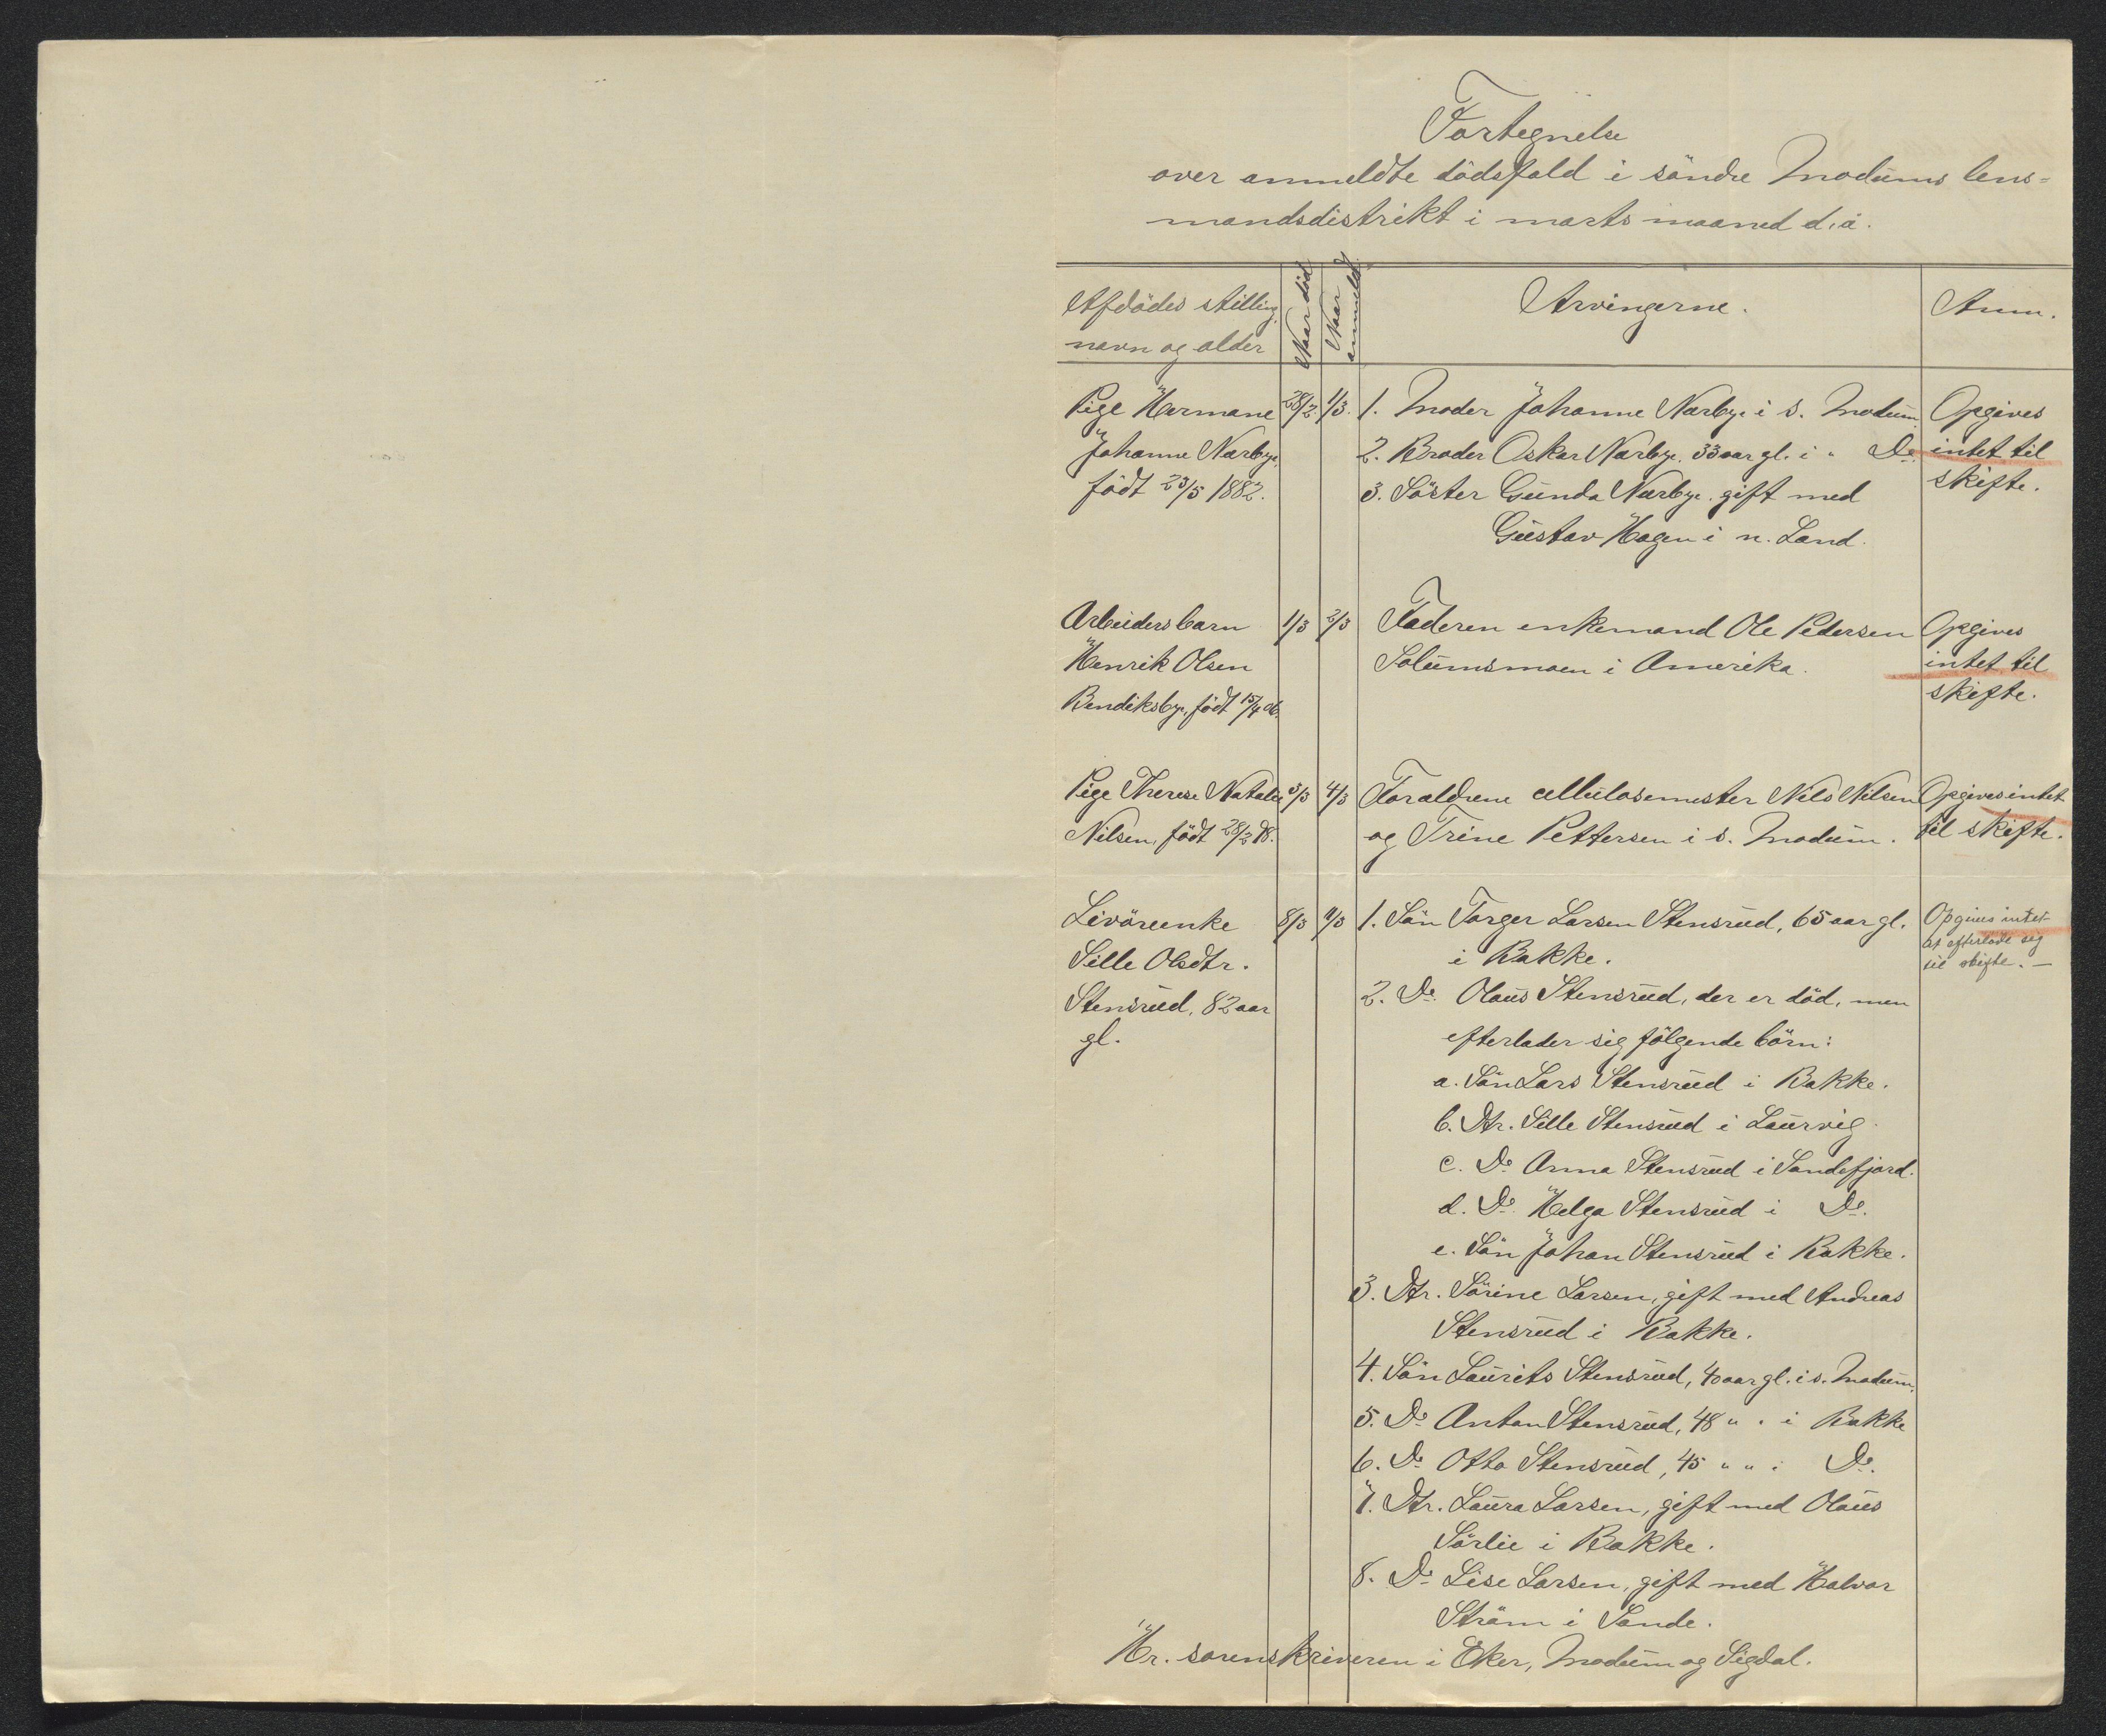 Fortegnelse
over anmeldte dödsfald i söndre Modums lens=
mandsdistrikt i marts maaned d. å.
Afdödes stilling,
navn og alder
Naar död
Naar anmeldt
Arvingerne.
Anm.
Pige Hermane
Johanne Nærbye,
födt 23/5 1882.
28/2.
1/3.
1. Moder Johanne Nærbye i s. Modum
2. Broder Oskar Nærbye, 33 aar gl. i " Do.
3. Söster Gunda Nærbye, gift med
Gustav Hagen i n. Land.
Opgives
intet til
skifte.
Arbeidersbarn
Henrik Olsen
Bendiksbye, födt 15/4 06.
1/3
2/3
Faderen enkemand Ole Pedersen
Solumsmoen i Amerika.
Opgives
intet til
skifte.
Pige Therese Natalie
Nilsen, födt 28/2 98.
3/3
4/3
Forældrene cellulosemester Nils Nilsen
og Trine Pettersen i s. Modum.
Opgives intet
til skifte.
Livöreenke
Sille Olsdtr.
Stensrud, 82 aar
gl.
8/3
11/3
1. Sön Torger Larsen Stensrud, 65 aar gl.
i Bakke.
2. Do. Olaus Stensrud, der er död, men
efterlader sig fölgende börn:
a. Sön Lars Stensrud i Bakke.
b. Dtr. Sille Stensrud i Laurvig.
c. Do. Anna Stensrud i Sandefjord.
d. Do. Helga Stensrud i Do.
e. Sön Johan Stensrud i Bakke.
3. Dtr. Sörine Larsen, gift med Andreas
Stensrud i Bakke.
4. Sön Laurits Stensrud, 40 aar gl. i s. Modum.
5. Do. Anton Stensrud, 48 " " i Bakke
6. Do. Otto Stensrud, 45 " " i Do.
7. Dtr. Laura Larsen, gift med Olaus
Sörlie i Bakke.
8. Do. Lise Larsen, gift med Halvor
Ström i Sande.
Opgives intet
at efterlade sig
til skifte. —
Hr. sorenskriveren i Eker, Modum og Sigdal.